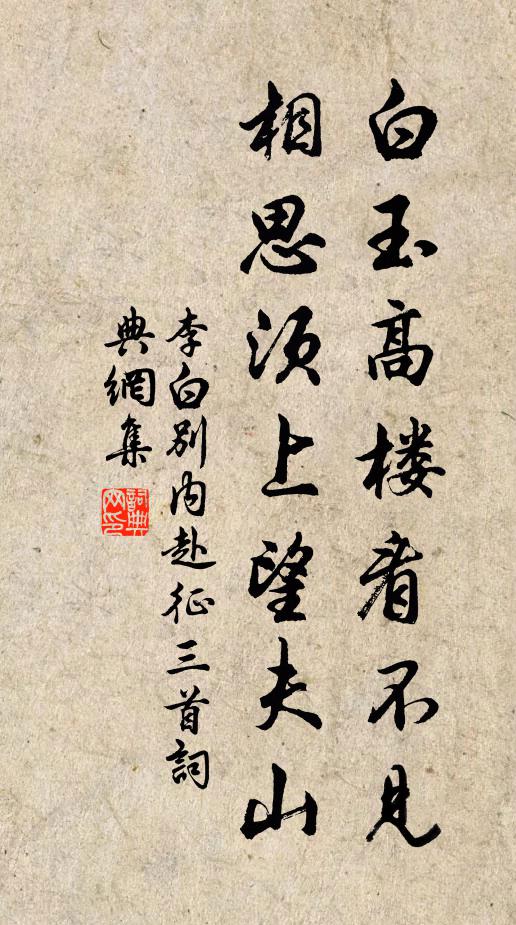 白玉高楼看不見
相思須上望夫山
李白别内赴征三首詞
典網集
詞典
网印